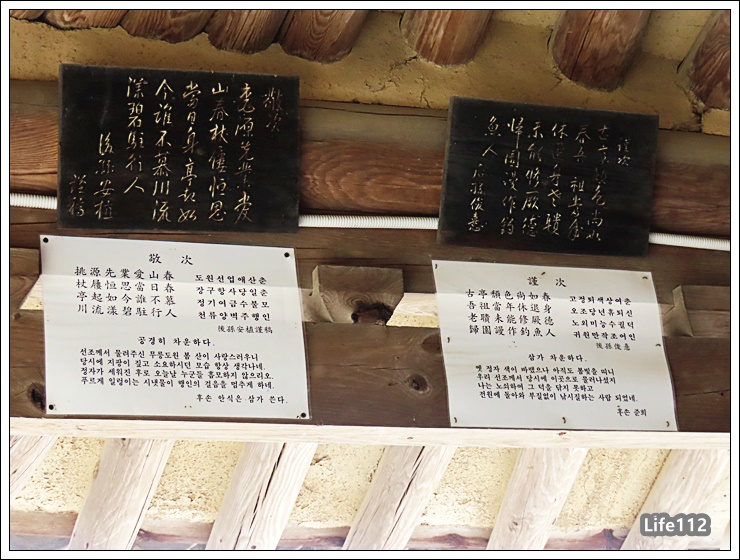 敬次
桃源先業愛
山春杖屨恒思
當日身亭起如
今誰不慕川流
漾碧駐行人
後孫安植
謹稿
謹次
古亭頹色尚如
春吾祖當年
休退身老
未能修厥德
歸園謾作釣
魚人 后孫俊憙
敬 次
挑源先業愛山春 도원선업애산춘
杖屨恒思當日春 장구항사당일춘
亭起如今誰不慕 정기여금수불모
川流漾碧駐行人 천류양벽주행인
後孫安植謹稿
공경히 차운하다.
선조께서 물려주신 무릉도원 봄 산이 사랑스러우니
당시에 지팡이 짚고 소요하시던 모습 항상 생각나네.
정자가 세워진 후로 오늘날 누군들 흠모하지 않으리오.
푸르게 일렁이는 시냇물이 행인의 걸음을 멈추게 하네.
후손 안식은 삼가 쓴다.
謹 次
古亭頹色尚如春 고정퇴색상여춘
吾祖當年休退身 오조당년휴퇴신
老未能修厥德 노외미능수궐덕
歸園謾作釣魚人 귀원만작조어인
後孫俊憙
삼가 차운하다.
옛 정자 색이 바랬으나 아직도 봄빛을 띠니
우리 선조께서 당시에 이곳으로 물러나셨지
나는 노쇠하여 그 덕을 닦지 못하고
전원에 돌아와 부질없이 낚시질하는 사람 되었네.
후손 준희
Life112